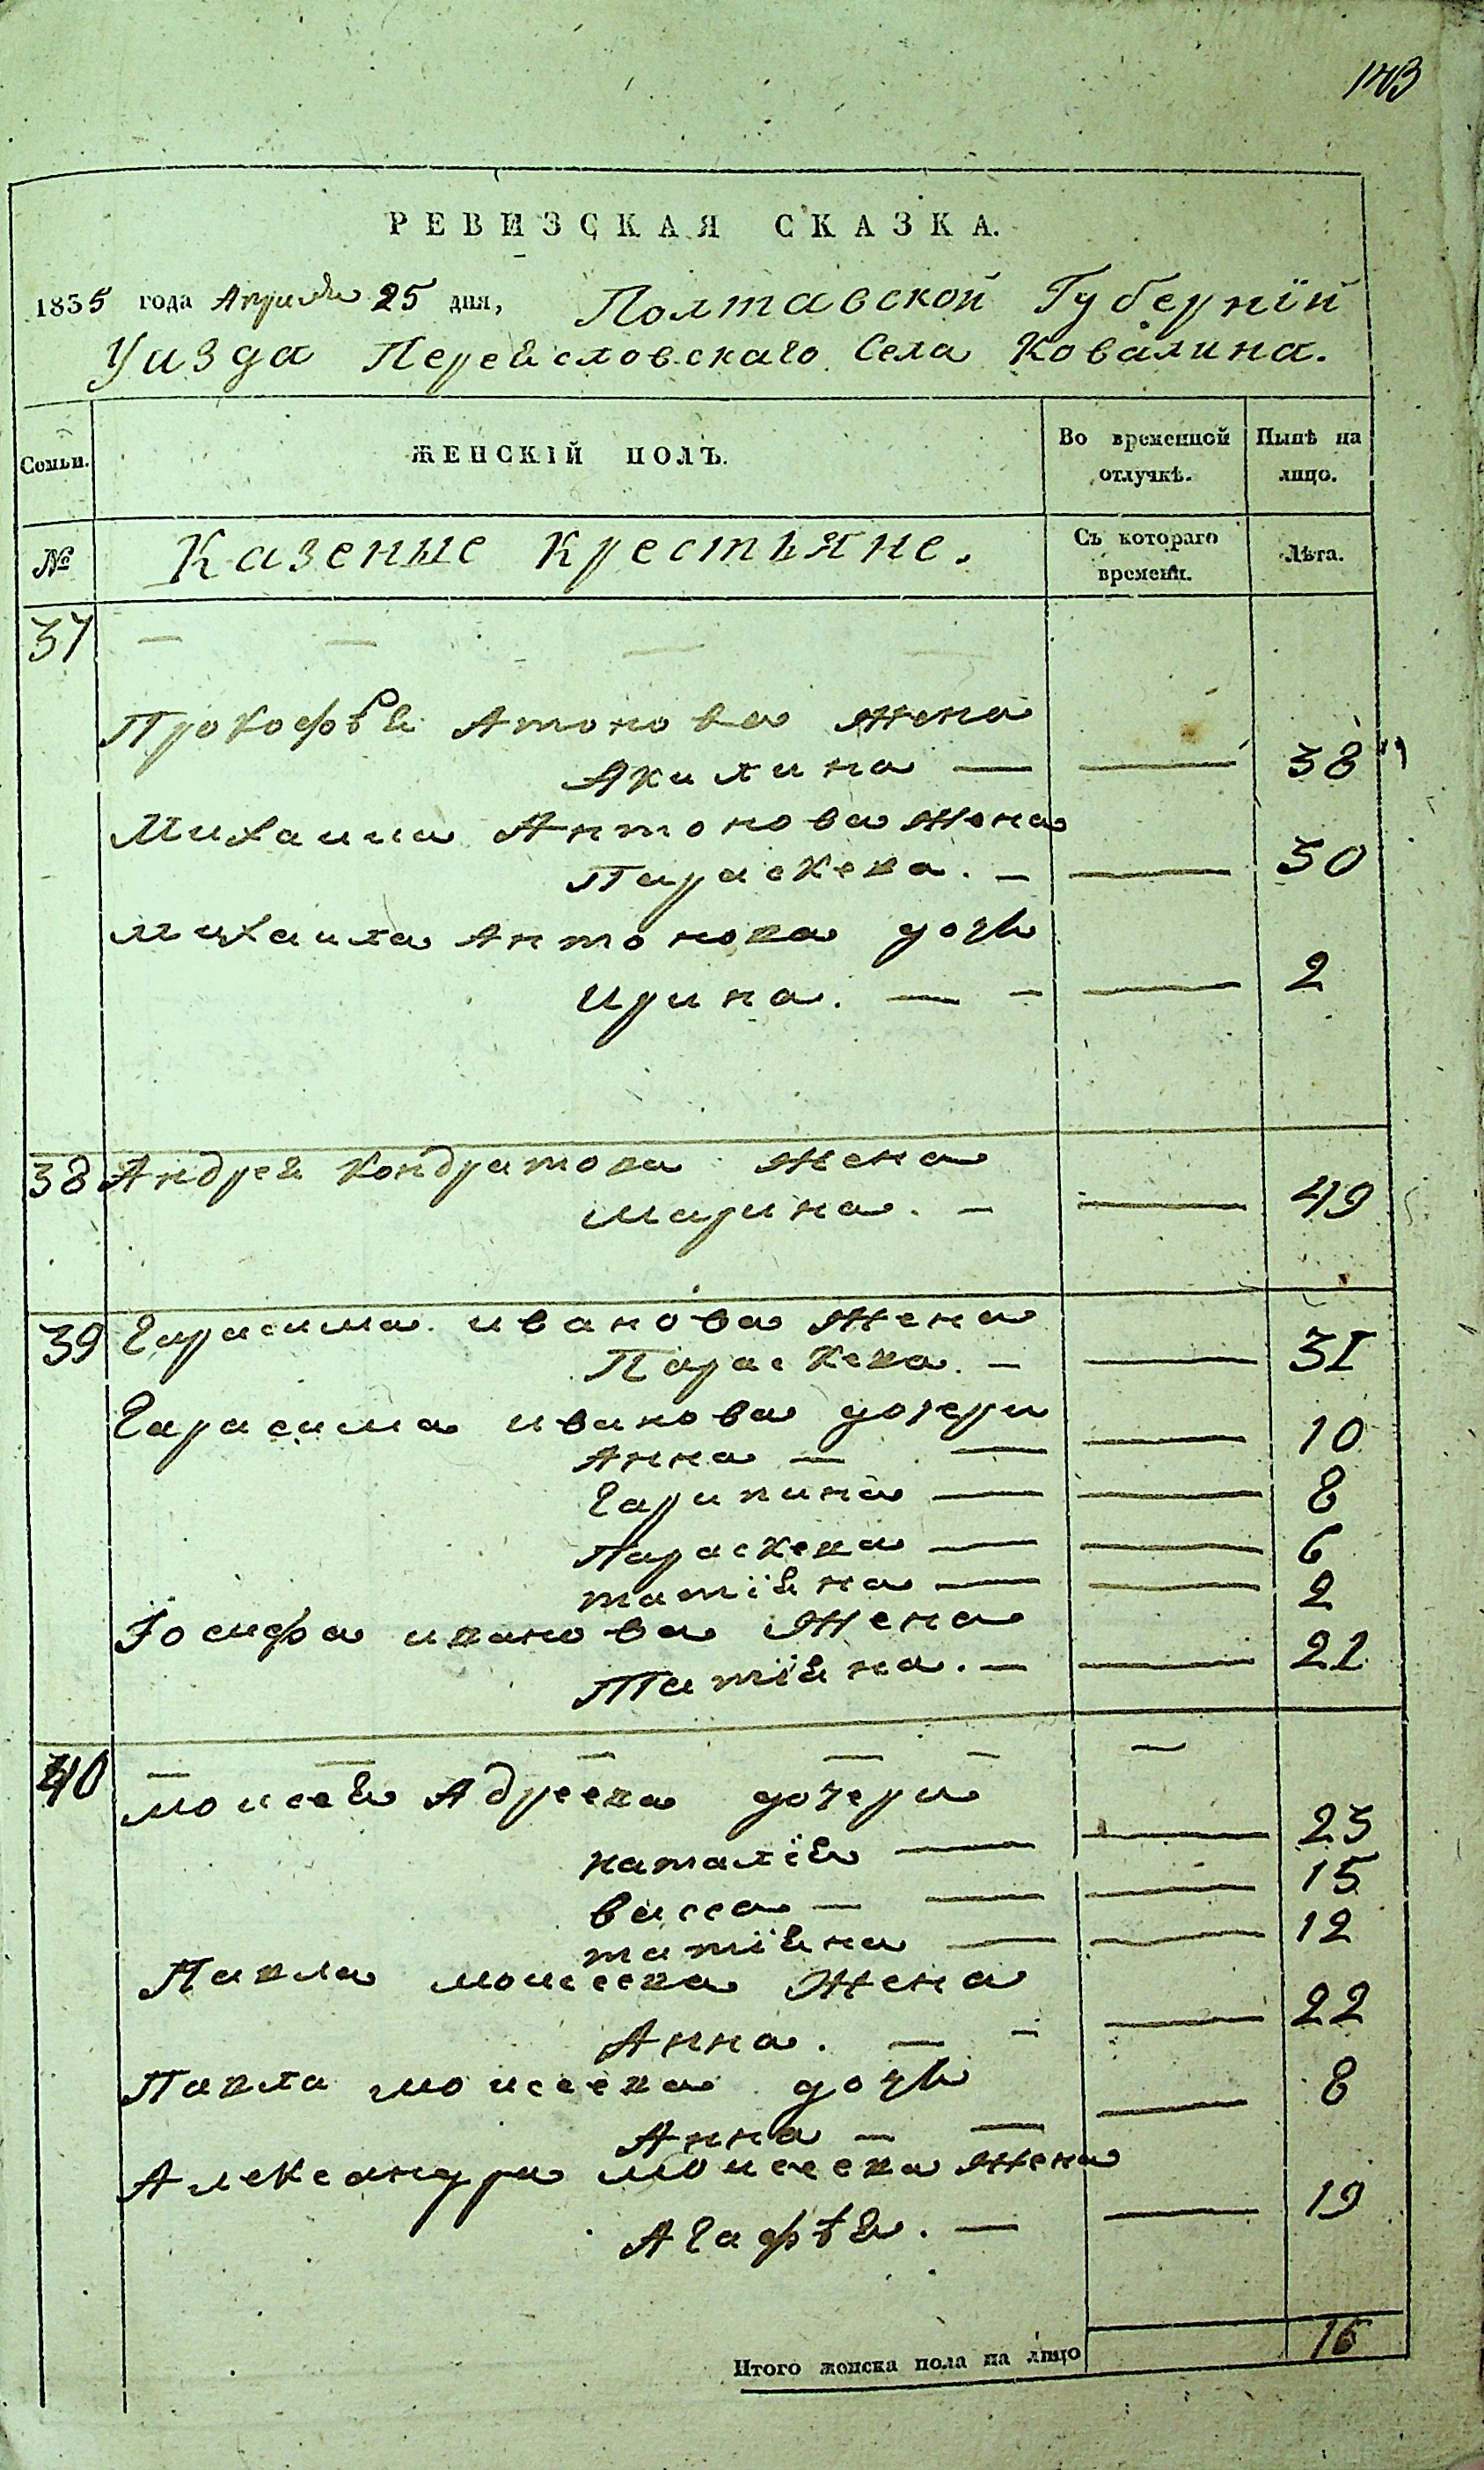 143
РЕВИЗСКАЯ СКАЗКА.
1835 года Апреля 25 дня, Полтавской Губернїи
Уизда Переясловскаго Села Ковалина.
Семьи. ЖЕНСКІЙ ПОЛЪ. Во временной отлучкѣ. Нынѣ на лицо.
№ Казеные крестьяне. Съ котораго времени. Лѣта.
37
Прокофѣя Атонова жена
Акилина — — 38
Михаила Антонова жена
Параскева. — — 30
Михаила Антонова дочь
Ирина. — — — 2
38 Андрея Кондратова жена
Марина. — — 49
39 Гарасима иванова жена
Параскева. — — 31
Гарасима иванова дочери
Анна — — — 10
Гарипина — — 8
Параскева — — 6
татїяна — — 2
Іосифа иванова жена
Татїяна. — — 22
40 — — — — — —
моисея Адреева дочери
наталїя — — 23
васса — — — 15
татїяна — — 12
Павла моисеева жена
Анна. — — — 22
Павла моисеева дочь
Анна — — — 8
Александра моисеева жена
Агафѣя. — — 19
Итого женска пола на лицо 16